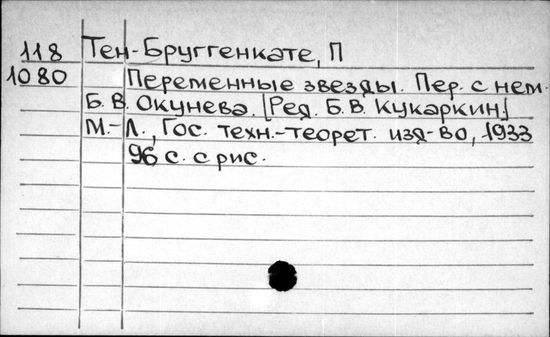 118 Тен-Бруггенкате, П
1080 Переменные звезды. Пер. с нем.
Б. В. Окунева. [Ред. Б. В. Кукаркин]
М.-Л., Гос. техн.-теорет. изд-во, 1933
96 с. с рис.